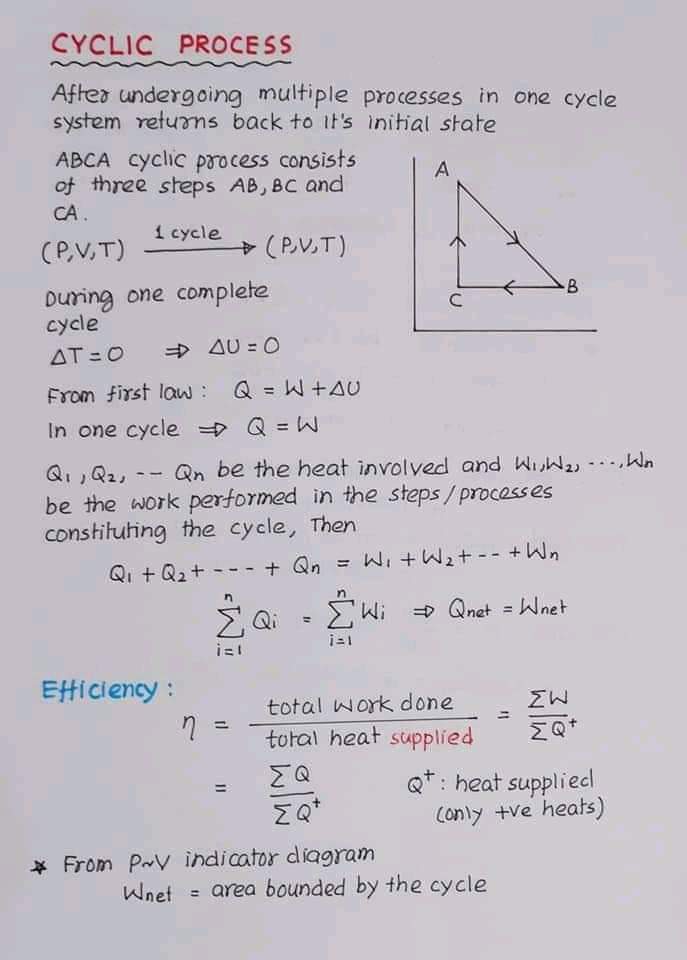 CYCLIC PROCESS
After undergoing multiple processes in one cycle
system returns back to it's initial state
ABCA cyclic process consists
of three steps AB, BC and
CA.
(P,V,T) 1 cycle → (P,V,T)
A
B
C
During one complete
cycle
ΔT = 0 ⇒ ΔU = 0
From first law : Q = W + ΔU
In one cycle ⇒ Q = W
Q₁, Q₂, -- Qn be the heat involved and W₁,W₂, ...,Wn
be the work performed in the steps/processes
constituting the cycle, Then
Q₁ + Q₂ + ---- + Qn = W₁ + W₂ + -- + Wn
n n
∑ Qi = ∑ Wi ⇒ Qnet = Wnet
i=1 i=1
Efficiency :
η = total work done / total heat supplied = ΣW / ΣQ⁺
= ΣQ / ΣQ⁺ Q⁺ : heat supplied
(only +ve heats)
* From P~V indicator diagram
Wnet = area bounded by the cycle